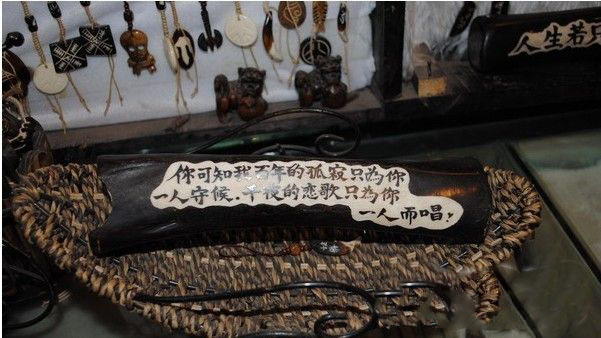 你可知我百年的孤寂只为你
一人守候.千夜的恋歌只为你
一人而唱!
人生若只